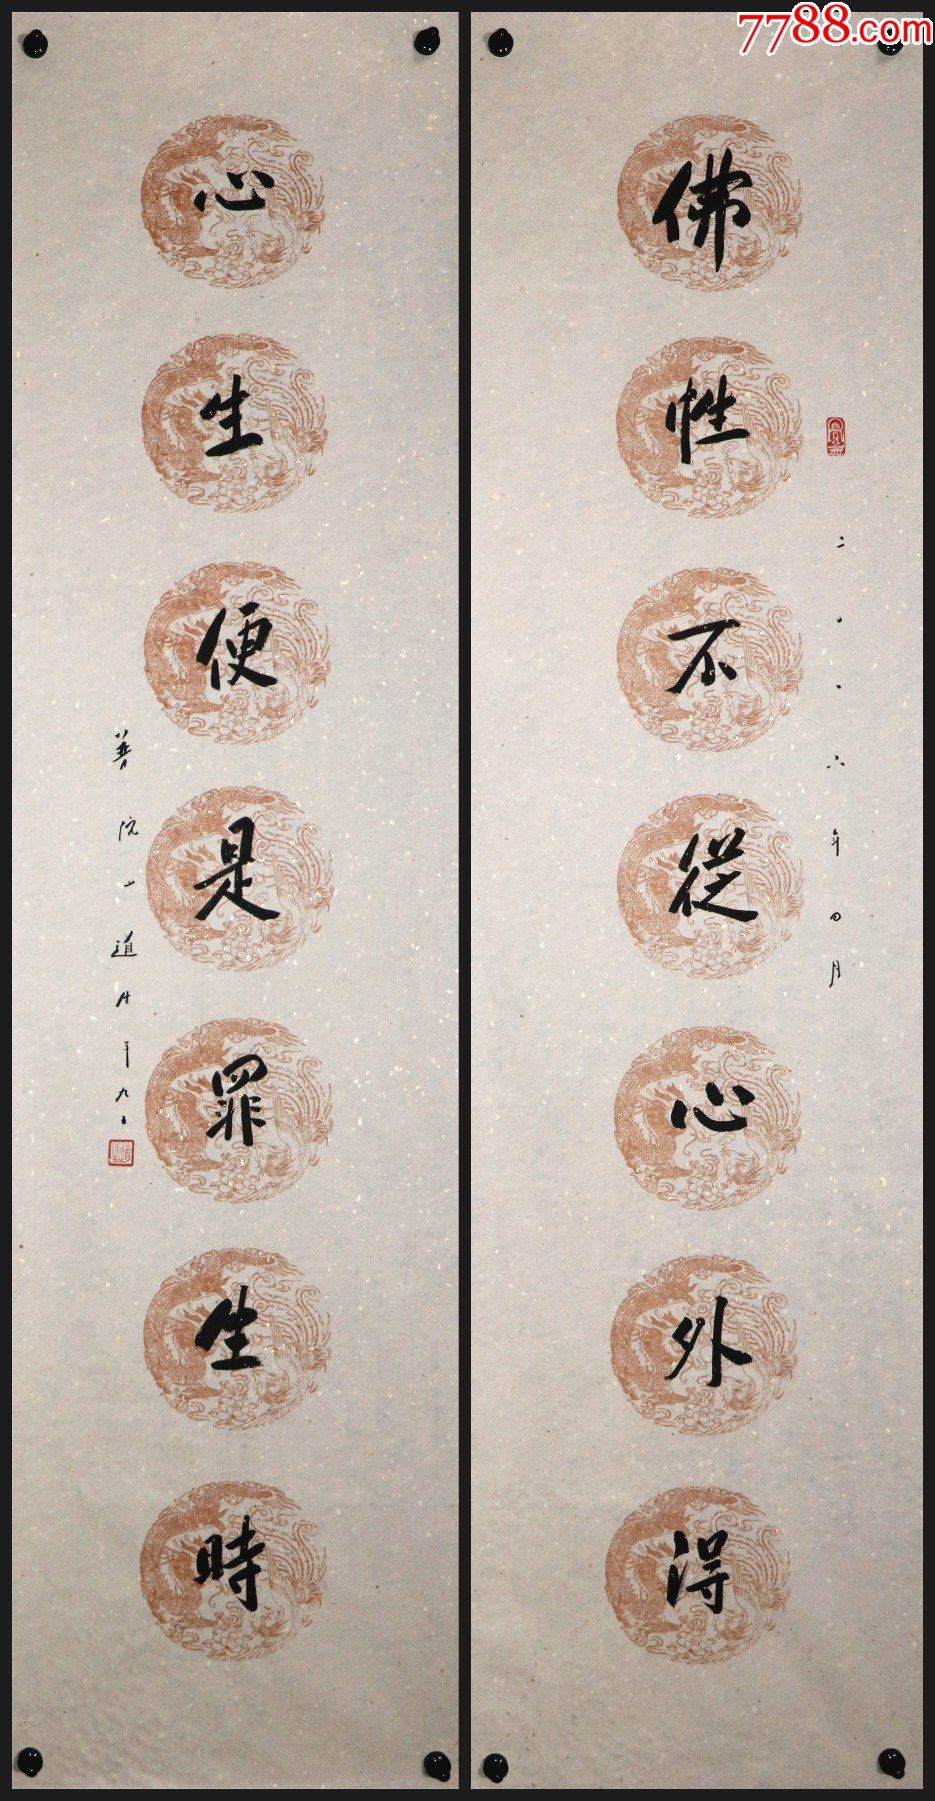 7788.com
佛性不從心外得
二〇〇六年四月
心生便是罪生時
道生年九